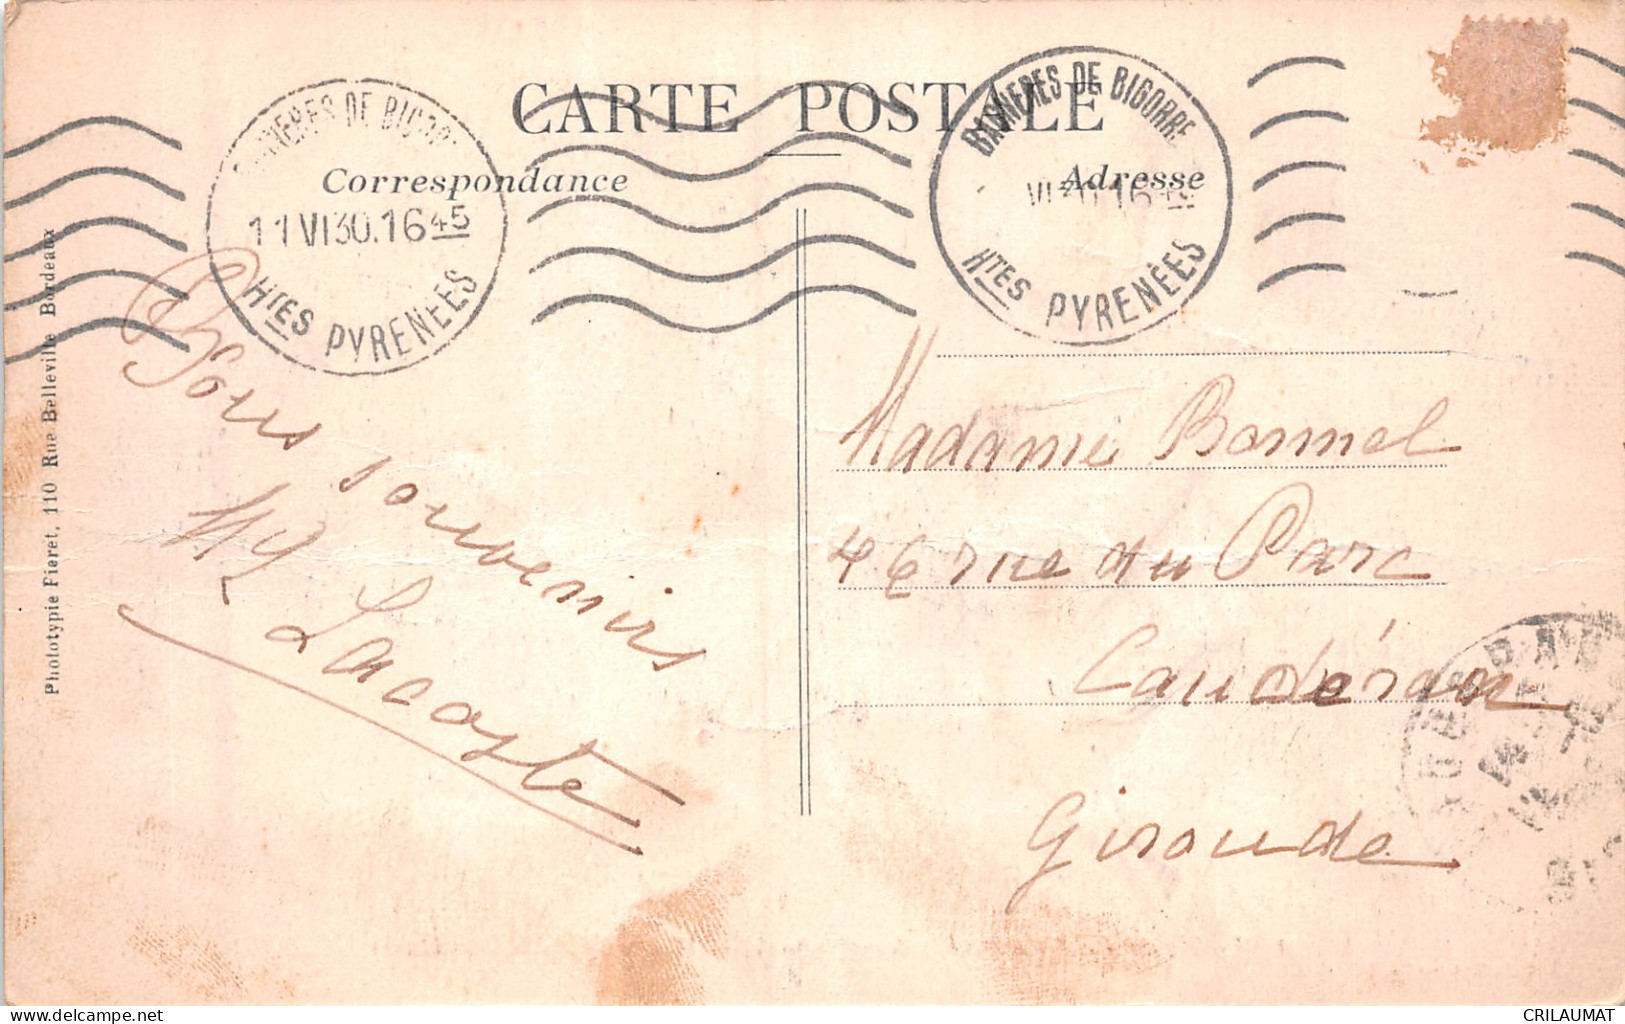 CARTE POSTALE
Correspondance
Adresse
BIGORRE
11 VI 30. 16 45
Htes PYRENÉES
BAGNERES DE BIGORRE
Htes PYRENÉES
Phototypie Fieret, 110 Rue Belleville Bordeaux
Bons souvenirs
Lacoste
Madame Bonnel
46 rue du Parc
Caudéran
Gironde
CRILAUMAT